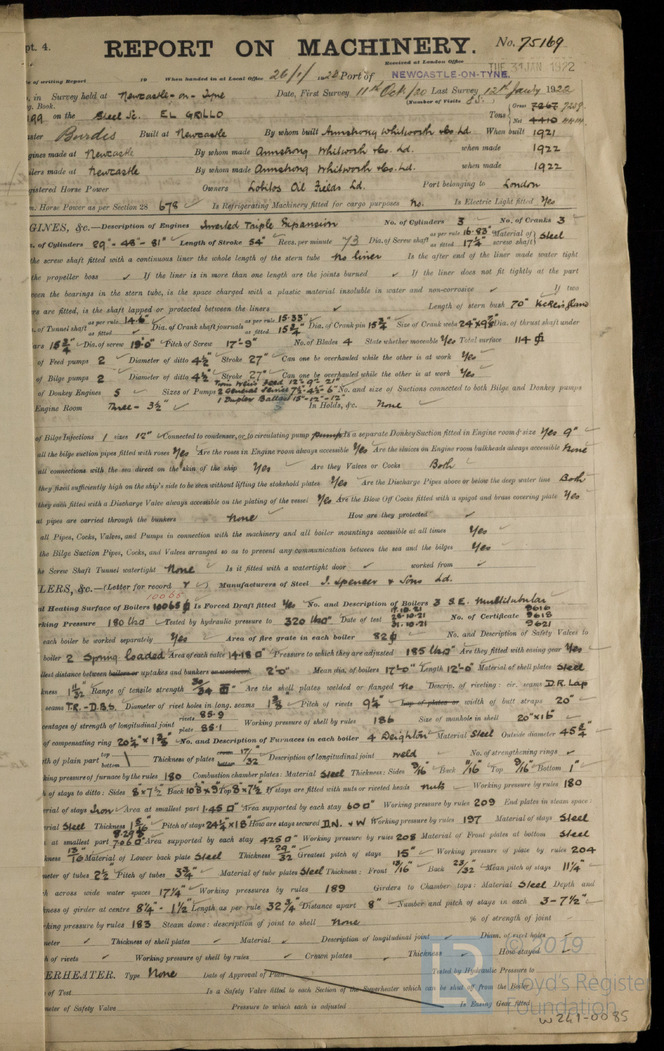 pt. 4.
REPORT ON MACHINERY. No. 75169
Received at London Office TUE. 31 JAN. 1922
of writing Report 19 When handed in at Local Office 26/1/1922 Port of NEWCASTLE-ON-TYNE.
in Survey held at Newcastle-on-Tyne Date, First Survey 11th Oct/20 Last Survey 12th Jan'y 1922
Book. (Number of Visits 85)
99 on the Steel Sc. EL GRILLO Tons Gross 7267 7259 Net 4410
Master Burdes Built at Newcastle By whom built Armstrong Whitworth & Co. Ld. When built 1921
gines made at Newcastle By whom made Armstrong Whitworth & Co. Ld. when made 1922
ilers made at Newcastle By whom made Armstrong Whitworth & Co. Ld. when made 1922
gistered Horse Power Owners Lobitos Oil Fields Ld. Port belonging to London
Horse Power as per Section 28 678 Is Refrigerating Machinery fitted for cargo purposes No. Is Electric Light fitted Yes
GINES, &c.—Description of Engines Inverted Triple Expansion No. of Cylinders 3 No. of Cranks 3
of Cylinders 29"-48"-81" Length of Stroke 54" Revs. per minute 73 Dia. of Screw shaft as per rule 16.83" as fitted 17¼" Material of screw shaft Steel
the screw shaft fitted with a continuous liner the whole length of the stern tube No liner Is the after end of the liner made water tight
the propeller boss ✓ If the liner is in more than one length are the joints burned ✓ If the liner does not fit tightly at the part
een the bearings in the stern tube, is the space charged with a plastic material insoluble in water and non-corrosive ✓ If two
rs are fitted, is the shaft lapped or protected between the liners ✓ Length of stern bush 70"
of Tunnel shaft as per rule 14.6" as fitted ✓ Dia. of Crank shaft journals as per rule 15.33" as fitted 15¾" Dia. of Crank pin 15¾" Size of Crank webs 24"x9⅞" Dia. of thrust shaft under
ars 15¾" Dia. of screw 19-0" Pitch of Screw 17-9" No. of Blades 4 State whether moveable Yes Total surface 114
of Feed pumps 2 Diameter of ditto 4½" Stroke 27" Can one be overhauled while the other is at work Yes
of Bilge pumps 2 Diameter of ditto 4½" Stroke 27" Can one be overhauled while the other is at work Yes
of Donkey Engines 5 Sizes of Pumps 1 Duplex Ballast 15"-12"-12" No. and size of Suctions connected to both Bilge and Donkey pumps
Engine Room Three-3½" In Holds, &c. None
of Bilge Injections 1 sizes 12" Connected to condenser, or to circulating pump pump Is a separate Donkey Suction fitted in Engine room & size Yes 9"
all the bilge suction pipes fitted with roses Yes Are the roses in Engine room always accessible Yes Are the sluices on Engine room bulkheads always accessible None
all connections with the sea direct on the skin of the ship Yes Are they Valves or Cocks Both
they fixed sufficiently high on the ship's side to be seen without lifting the stokehold plates Yes Are the Discharge Pipes above or below the deep water line Both
they each fitted with a Discharge Valve always accessible on the plating of the vessel Yes Are the Blow Off Cocks fitted with a spigot and brass covering plate Yes
at pipes are carried through the bunkers None How are they protected ✓
all Pipes, Cocks, Valves, and Pumps in connection with the machinery and all boiler mountings accessible at all times Yes
the Bilge Suction Pipes, Cocks, and Valves arranged so as to prevent any communication between the sea and the bilges Yes
he Screw Shaft Tunnel watertight None Is it fitted with a watertight door ✓ worked from ✓
LERS, &c.—(Letter for record ✓) Manufacturers of Steel J. Spencer & Sons Ld.
al Heating Surface of Boilers 10065 Is Forced Draft fitted Yes No. and Description of Boilers 3 S.E. Multitubular
rking Pressure 180 lbs Tested by hydraulic pressure to 320 lbs Date of test 28.10.21 31.10.21 No. of Certificate 9616 9618 9621
each boiler be worked separately Yes Area of fire grate in each boiler 82 No. and Description of Safety Valves to
boiler 2 Spring loaded Area of each valve 14.18 Pressure to which they are adjusted 185 lbs Are they fitted with easing gear Yes
llest distance between boilers or uptakes and bunkers or woodwork 2'-0" Mean dia. of boilers 17'-0" Length 12'-0" Material of shell plates Steel
kness 1 11/32" Range of tensile strength 30/34 Are the shell plates welded or flanged No Descrip. of riveting: cir. seams D.R. Lap
seams T.R.-D.B.S. Diameter of rivet holes in long. seams 1⅜" Pitch of rivets 9¾" Lap of plates or width of butt straps 20"
centages of strength of longitudinal joint rivets 85.9 plate 85.1 Working pressure of shell by rules 186 Size of manhole in shell 20"x16"
of compensating ring No. and Description of Furnaces in each boiler 4 Deighton Material Steel Outside diameter 45¾"
th of plain part top bottom Thickness of plates 17/32 Description of longitudinal joint weld No. of strengthening rings ✓
king pressure of furnace by the rules 180 Combustion chamber plates: Material Steel Thickness: Sides 9/16" Back 9/16" Top 9/16" Bottom 1"
h of stays to ditto: Sides 8"x7½" Back Top 8"x7½" If stays are fitted with nuts or riveted heads nuts Working pressure by rules 180
erial of stays Iron Area at smallest part 1.45 Area supported by each stay 60 Working pressure by rules 209 End plates in steam space:
rial Steel Thickness Pitch of stays How are stays secured D.N. & W Working pressure by rules 197 Material of stays Steel
at smallest part 8.298 Area supported by each stay 425 Working pressure by rules 208 Material of Front plates at bottom Steel
13/16 Material of Lower back plate Steel Thickness 29/32 Greatest pitch of stays 15" Working pressure of plate by rules 204
meter of tubes 2½" Pitch of tubes 3¾" Material of tube plates Steel Thickness: Front 13/16" Back 23/32" Mean pitch of stays 11¼"
h across wide water spaces 17¼" Working pressures by rules 189 Girders to Chamber tops: Material Steel Depth and
kness of girder at centre 8¼"-1½" Length as per rule 32¾" Distance apart 8" Number and pitch of stays in each 3-7½"
king pressure by rules 183 Steam dome: description of joint to shell None % of strength of joint
meter ✓ Thickness of shell plates ✓ Material ✓ Description of longitudinal joint ✓ Diam. of rivet holes ✓
h of rivets ✓ Working pressure of shell by rules ✓ Crown plates ✓ Thickness ✓ How stayed ✓
ERHEATER. Type None Date of Approval of Plan Tested by Hydraulic Pressure to
of Test Is a Safety Valve fitted to each Section of the Superheater which can be shut off from the Boiler
meter of Safety Valve Pressure to which each is adjusted Is Easing Gear fitted
© 2019
Lloyd's Register
Foundation
W261-0085